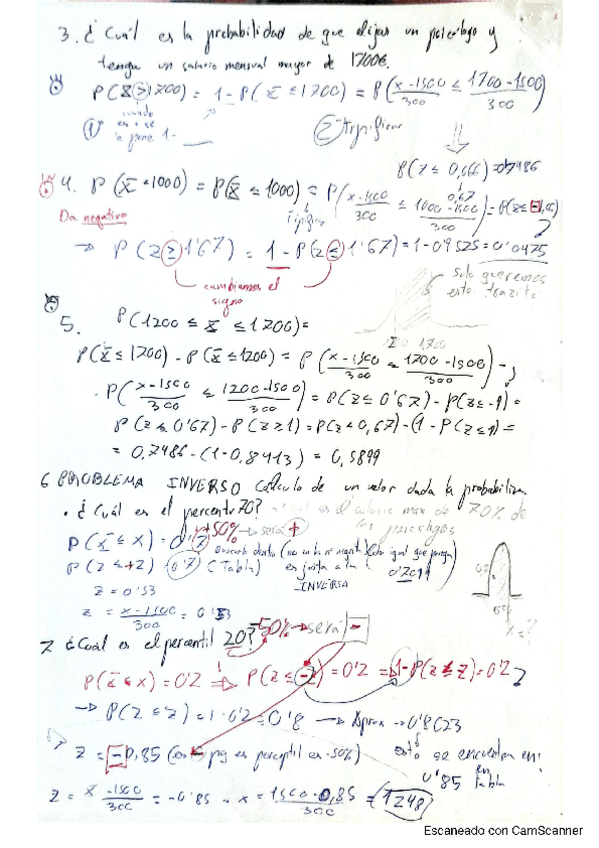 3. ¿Cuál es la probabilidad de que elijas un psicólogo y
tenga un salario mensual mayor de 1700€.
P(X̄ > 1700) = 1 - P(X̄ ≤ 1700) = P(x-1500/300 ≤ 1700-1500/300)
cuando
se pone 1-
① ② Tipificar
P(Z ≤ 0,666) = 0'7486
0,67
4. P(X̄ < 1000) = P(X̄ ≤ 1000) = P(x-1500/300 ≤ 1000-1500/300) = P(Z ≤ -1,67)
Da negativo
Tipificar
→ P(Z ≥ 1'67) = 1 - P(Z ≤ 1'67) = 1 - 0'9525 = 0'0475
cambiamos el
signo
Solo queremos
este trazito
1200 1700
5. P(1200 ≤ X̄ ≤ 1700) =
P(X̄ ≤ 1700) - P(X̄ ≤ 1200) = P(x-1500/300 ≤ 1700-1500/300) -
- P(x-1500/300 ≤ 1200-1500/300) = P(Z ≤ 0'67) - P(Z ≤ -1) =
P(Z ≤ 0'67) - P(Z ≥ 1) = P(Z < 0,67) - (1 - P(Z ≤ 1)) =
= 0,7486 - (1 - 0,8413) = 0,5899
6 PROBLEMA INVERSO Cálculo de un valor dada la probabilidad
. ¿Cuál es el percentil 70? es el salario max de 70% de
los psicólogos
+50% → será +
P(X̄ ≤ x) = 0'7
P(Z ≤ +Z) = 0'7 (Tabla)
0'7019
INVERSA
Z = 0'53
Z = x-1500/300 = 0'53
0,7
x = ?
7 ¿Cuál es el percentil 20? -50% → será -
P(X̄ ≤ x) = 0'2 ⇒ P(Z ≤ -Z) = 0'2 ⇒ 1 - P(Z ≤ Z) = 0'2
→ P(Z ≤ Z) = 1 - 0'2 = 0'8 → Aprox → 0'8023
esto se encuentra en:
0'85 en tabla
Z = -0,85 (es pq es percentil es -50%)
Z = x-1500/300 = -0'85 → x = 1500-0,85/300 = 1248
Escaneado con CamScanner